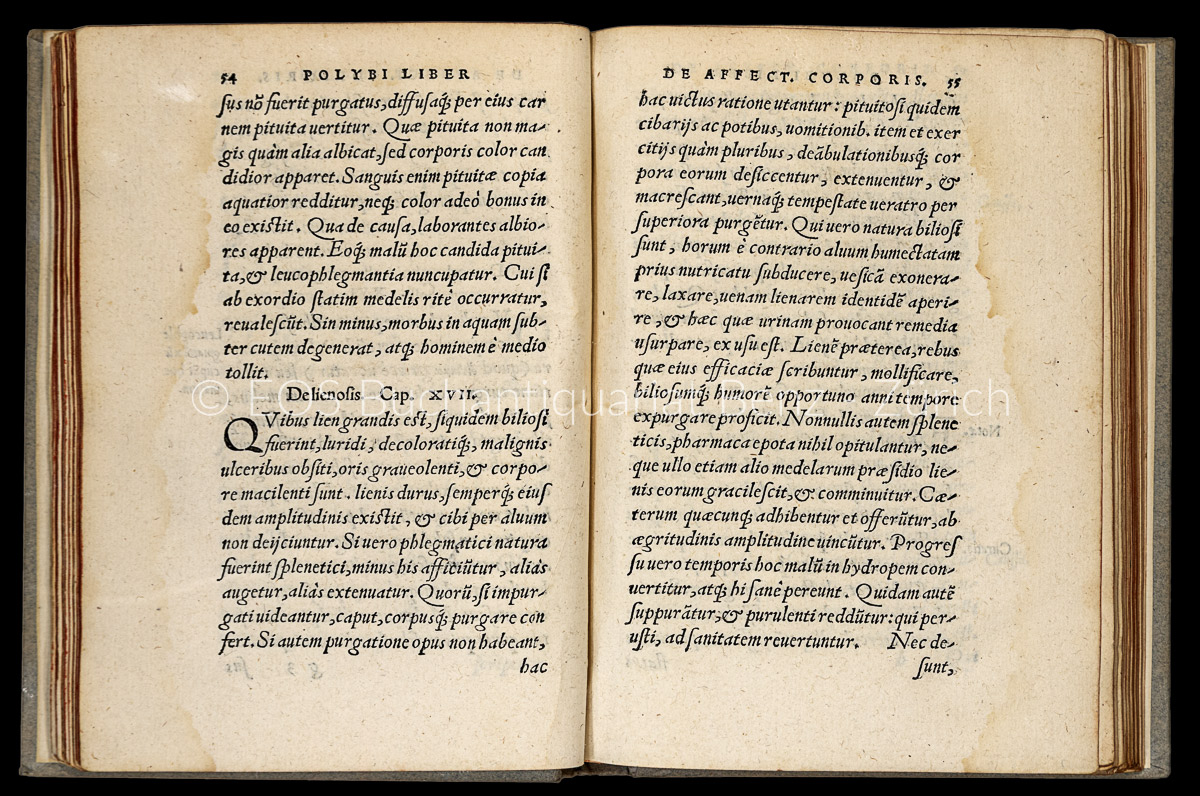 54 POLYBI LIBER
sus nō fuerit purgatus, diffusaq́; per eius car
nem pituita uertitur. Quæ pituita non ma-
gis quàm alia albicat, sed corporis color can
didior apparet. Sanguis enim pituitæ copia
aquatior redditur, neq; color adeò bonus in
eo existit. Qua de causa, laborantes albio-
res apparent. Eoq́; malū hoc candida pitui-
ta, & leucophlegmantia nuncupatur. Cui si
ab exordio statim medelis ritè occurratur,
reualescūt. Sin minus, morbus in aquam sub-
ter cutem degenerat, atq; hominem è medio
tollit.
De lienosis Cap. XVII.
QVibus lien grandis est, siquidem biliosi
fuerint, luridi, decoloratiq́;, malignis
ulceribus obsiti, oris graueolenti, & corpo-
re macilenti sunt. lienis durus, semperq́; eius
dem amplitudinis existit, & cibi per aluum
non deijciuntur. Si uero phlegmatici natura
fuerint splenetici, minus his afficiūtur, aliàs
augetur, aliàs extenuatur. Quorū, si impur-
gati uideantur, caput, corpusq́; purgare con
fert. Si autem purgatione opus non habeant,
hac
DE AFFECT. CORPORIS. 55
hac uictus ratione utantur: pituitosi quidem
cibarijs ac potibus, uomitionib. item et exer
citijs quàm pluribus, deābulationibusq́; cor
pora eorum desiccentur, extenuentur, &
macrescant, uernaq́; tempestate ueratro per
superiora purgētur. Qui uero natura biliosi
sunt, horum è contrario aluum humectatam
prius nutricatu subducere, uesicā exonera-
re, laxare, uenam lienarem identidē aperi-
re, & hæc quæ urinam prouocant remedia
usurpare, ex usu est. Lienē præterea, rebus
quæ eius efficaciæ scribuntur, mollificare,
biliosumq́; humorē opportuno anni tempore
expurgare proficit. Nonnullis autem splene
ticis, pharmaca epota nihil opitulantur, ne-
que ullo etiam alio medelarum præsidio lie-
nis eorum gracilescit, & comminuitur. Cæ-
terum quæcunq; adhibentur et offerūtur, ab
ægritudinis amplitudine uincūtur. Progres
su uero temporis hoc malū in hydropem con-
uertitur, atq; hi sanè pereunt. Quidam autē
suppurātur, & purulenti reddūtur: qui per-
usti, ad sanitatem reuertuntur. Nec de-
sunt,